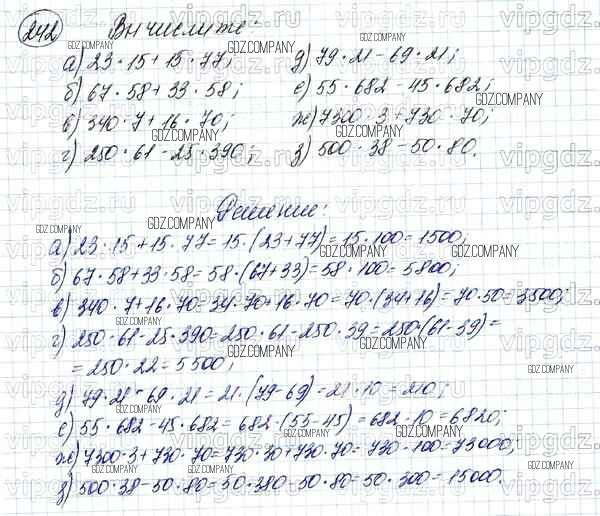 242 Вычислите:
а) 23·15+15·77; д) 79·21-69·21;
б) 67·58+33·58; е) 55·682-45·682;
в) 340·7+16·70; ж) 7300·3+730·70;
г) 250·61-25·390; з) 500·38-50·80.
Решение:
а) 23·15+15·77=15·(23+77)=15·100=1500;
б) 67·58+33·58=58·(67+33)=58·100=5800;
в) 340·7+16·70=34·70+16·70=70·(34+16)=70·50=3500;
г) 250·61-25·390=250·61-250·39=250·(61-39)=
=250·22=5500;
д) 79·21-69·21=21·(79-69)=21·10=210;
е) 55·682-45·682=682·(55-45)=682·10=6820;
ж) 7300·3+730·70=730·30+730·70=730·100=73000;
з) 500·38-50·80=50·380-50·80=50·300=15000.